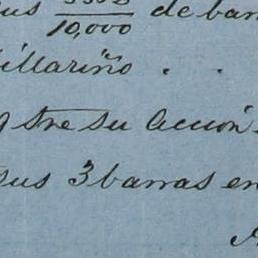 sus /10,000 de barr
Villariño . .
stre su accion
sus 3 barras en